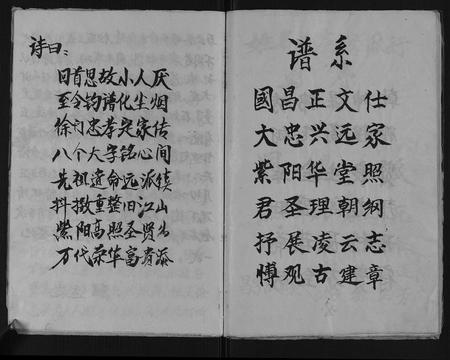 诗曰：
回首思故小人厌
至今钧谱化尘烟
徐门忠孝定家传
八个大字铭心间
先祖遗命远派镇
抖擞重整旧江山
紫阳高照圣贤出
万代荣华富贵添
谱系
國昌正文仕
大忠兴远家
紫阳华堂照
君圣理朝纲
抒展凌云志
博观古建章